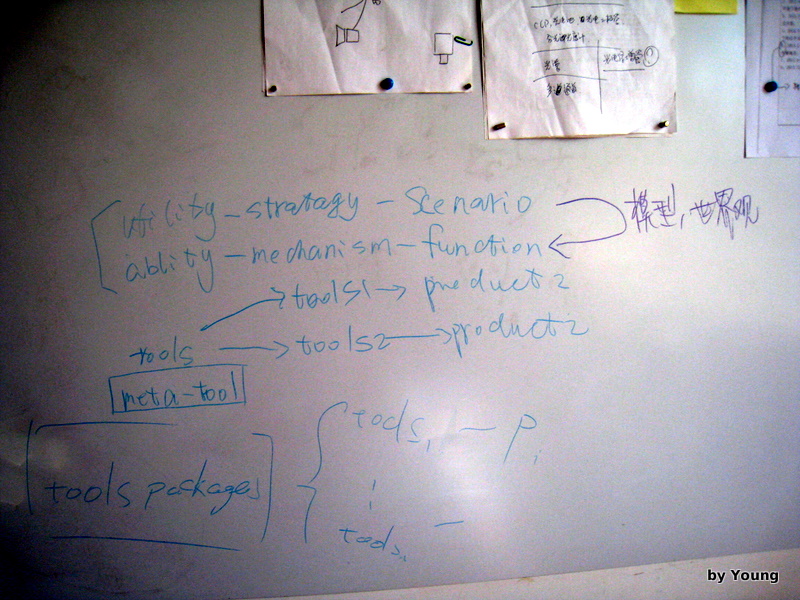 光管
utility - stratagy - Scenario
模型,世界观
ablity - mechanism - function
tools1 → product 2
tools → tools2 → product 2
meta-tool
tools packages
tools1 — Pi
tools
by Young